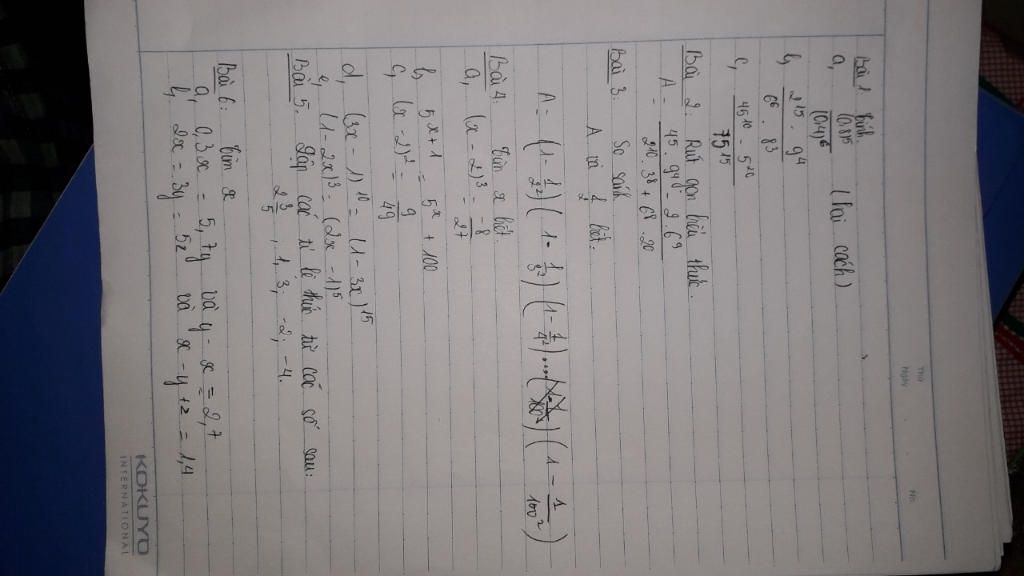 Thứ
Ngày
No.
Bài 1. Tính.
a, (0,8)⁵ / (0,4)⁶ (hai cách)
b, 2¹⁵ . 9⁴ / 6⁶ . 8³
c, 45¹⁰ . 5²⁰ / 75¹⁵
Bài 2: Rút gọn biểu thức.
A = 4⁵ . 9⁴ - 2 . 6⁹ / 2¹⁰ . 3⁸ + 6⁸ . 20
Bài 3: So sánh
A và 1/2 biết.
A = (1 - 1/2²) (1 - 1/3²) (1 - 1/4²) .... (1 - 1/100²)
Bài 4. Tìm x biết.
a, (x - 2)³ = -8/27
b, 5^x + 1 = 5^x + 100
c, (x - 2)² = 9/49
d, (3x - 1)¹⁰ = (1 - 3x)¹⁵
e, (1 - 2x)³ = (2x - 1)⁵
Bài 5. Lập các tỉ lệ thức từ các số sau:
2 3/5, 1, 3, -2; -4.
Bài 6: Tìm x
a, 0,3x = 5,7y và y - x = 2,7
b, 2x = 3y = 5z và x - y + z = 1,4
KOKUYO
INTERNATIONAL